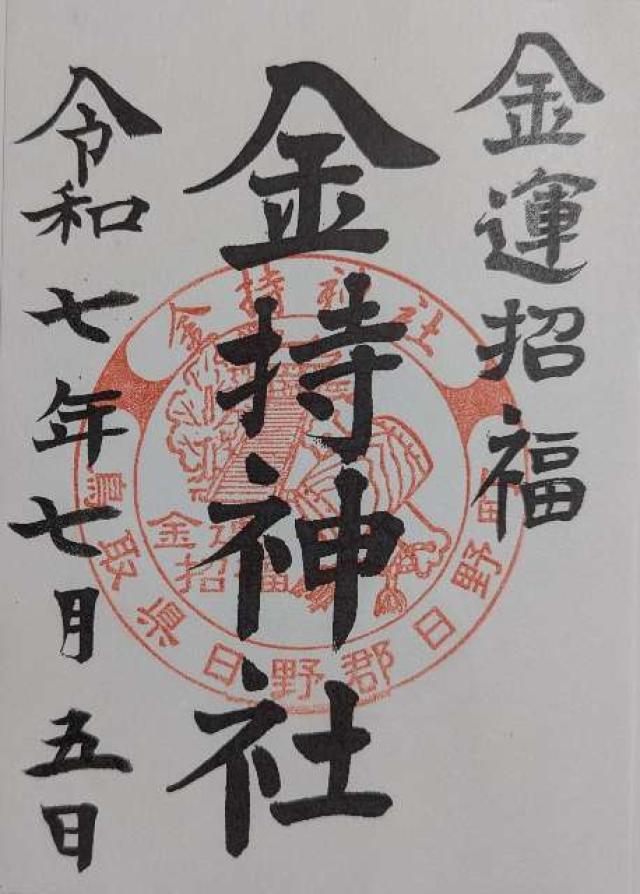 金運招福
金持神社
令和七年七月五日
金持神社
鳥取県日野郡日野
金運
招福